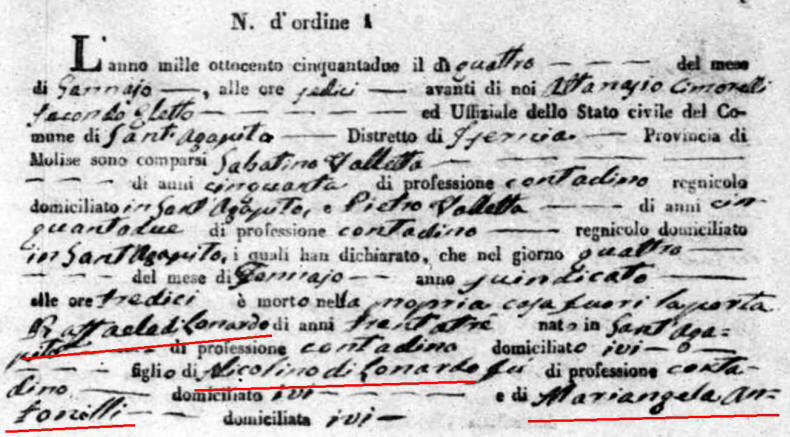 N. d'ordine 1
L'anno mille ottocento cinquantadue il dì quattro — — — — del mese
di Gennajo —, alle ore sedici — avanti di noi Attanasio Cimorelli
Secondo Eletto — — — — — — ed Uffiziale dello Stato civile del Co-
mune di Sant'Agapito — Distretto di Isernia — Provincia di
Molise sono comparsi Sabatino Valletta — — — — —
— — — di anni cinquanta di professione contadino regnicolo
domiciliato in Sant'Agapito, e Pietro Valletta — — di anni cin
quantadue di professione contadino — regnicolo domiciliato
in Sant'Agapito, i quali han dichiarato, che nel giorno quattro —
— — — del mese di Gennajo — anno suindicato —
alle ore tredici è morto nella propria casa fuori la porta
Raffaele di Lonardo di anni trentatrè nato in Sant'Aga-
pito — di professione contadino domiciliato ivi — o —
— figlio di Nicolino di Lonardo fu di professione conta-
dino — domiciliato ivi — — — e di Mariangela An-
tonilli — — domiciliata ivi —